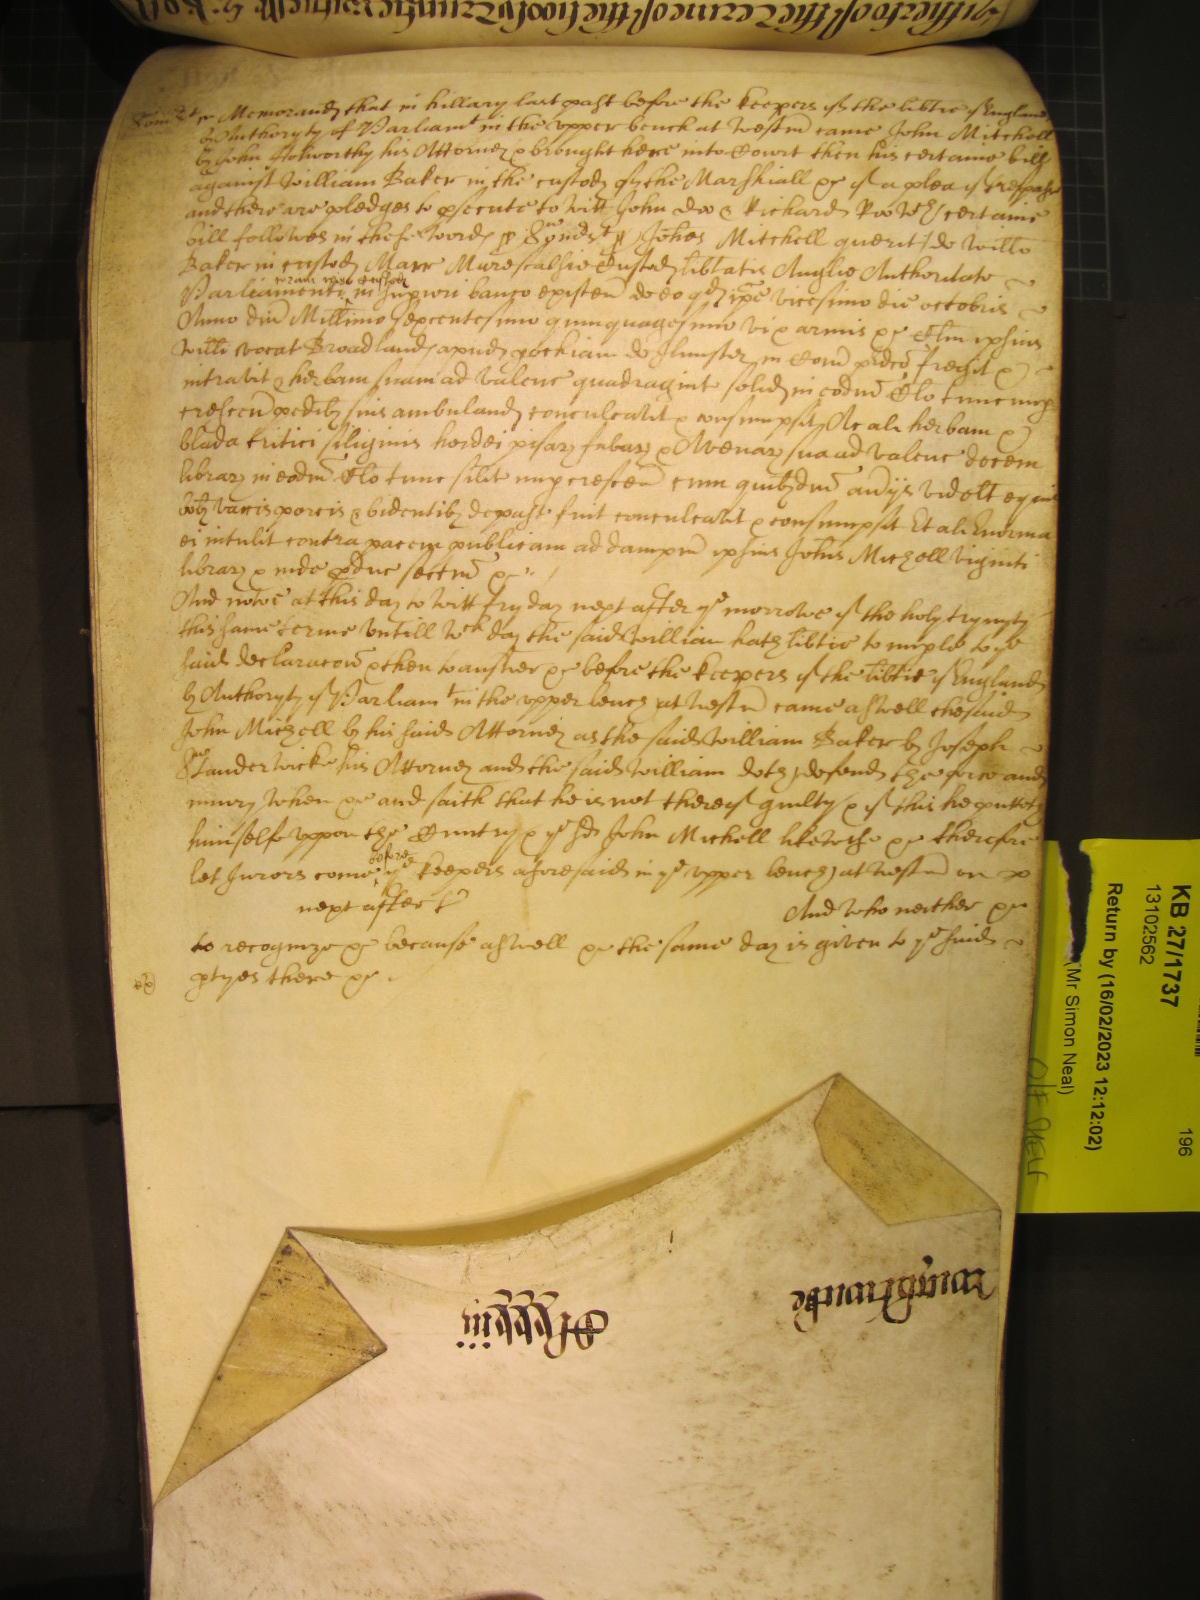 Somst ss Memorand that in hillary last past before the keepers of the libtie of England
by Authoryty of Parliamt in the upper bench at westm came John Mitchell
by John Holworthy his Attorney & brought here into Court then his certaine bill
against William Baker in the custody of the Marshiall &c of a plea of trespasse
and there are pledges to psecute to witt John doo & Richard Roo wch certaine
bill followes in these words ss Somst ss Johes Mitchell querit de Willo
Baker in custod Marr Marescalsie Custod libtatis Anglie Authoritate
Parliamenti in supiori banco existen de eo qd ipe vicesimo die octobris
coram ipsis custod
Anno dni Millimo sexcentesimo quinquagesimo vi & armis &c Clm ipsius
Willi vocat Broadland apud pochiam de Ilmster in Com pdco fregit &
intravit & herbam suam ad valenc quadragint solid in eodm Clo tunc
crescen pedibz suis ambuland conculcavit & consumpsit Ac al herbam &
blada tritici siliginis hordei pisarz fabarz & Avenarz sua ad valenc decem
librarz in eodm Clo tunc silit crescen cum quibzdm aviis videlt
vaccis porcis & bidentibz depast fuit conculcavit & consumpsit Et al Enormia
ei intulit contra pacem publicam ad dampm ipsius Johis Michell viginti
librarz & inde pduc sectm &c
And nowe at this day to witt fryday next after ye morrowe of the holy trynyty
this same terme untill wch day the said William hath libtie to imple to ye
said declaracon & then to answer &c before the keepers of the libtie of England
by Authoryty of Parliamt in the upper bench at westm came aswell the said
John Michell by his said Attorney as the said William Baker by Joseph
Standerwicke his Attorney and the said William doth defend the force and
iniury when &c and saith that he is not thereof guilty & of this he putteth
himselfe uppon the Cuntry & ye sd John Michell likewise &c therefore
let Jurors come before ye keepers aforesaid in ye upper bench at westm on
next after And who neither &c
to recognize &c because aswell &c the same day is given to ye said
ptyes there &c
KB 27/1737
13102562
196
Return by (16/02/2023 12:12:02)
(Mr Simon Neal)
O/F SHELF